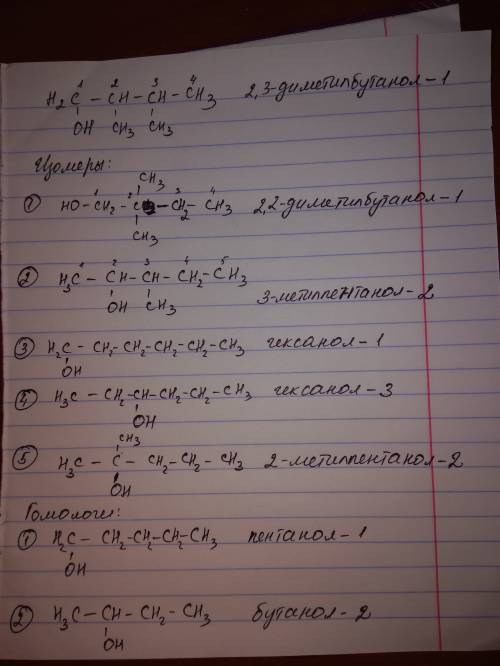 1 2 3 4
H₂C – CH – CH – CH₃ 2,3-диметилбутанол-1
OH CH₃ CH₃
Изомеры:
CH₃
1 2 3 4
① HO – CH₂ – C – CH₂ – CH₃ 2,2-диметилбутанол-1
CH₃
1 2 3 4 5
② H₃C – CH – CH – CH₂ – CH₃
OH CH₃ 3-метилпентанол-2
③ H₂C – CH₂ – CH₂ – CH₂ – CH₂ – CH₃ гексанол-1
OH
④ H₃C – CH₂ – CH – CH₂ – CH₂ – CH₃ гексанол-3
OH
CH₃
⑤ H₃C – C – CH₂ – CH₂ – CH₃ 2-метилпентанол-2
OH
Гомологи:
① H₂C – CH₂ – CH₂ – CH₂ – CH₃ пентанол-1
OH
② H₃C – CH – CH₂ – CH₃ бутанол-2
OH